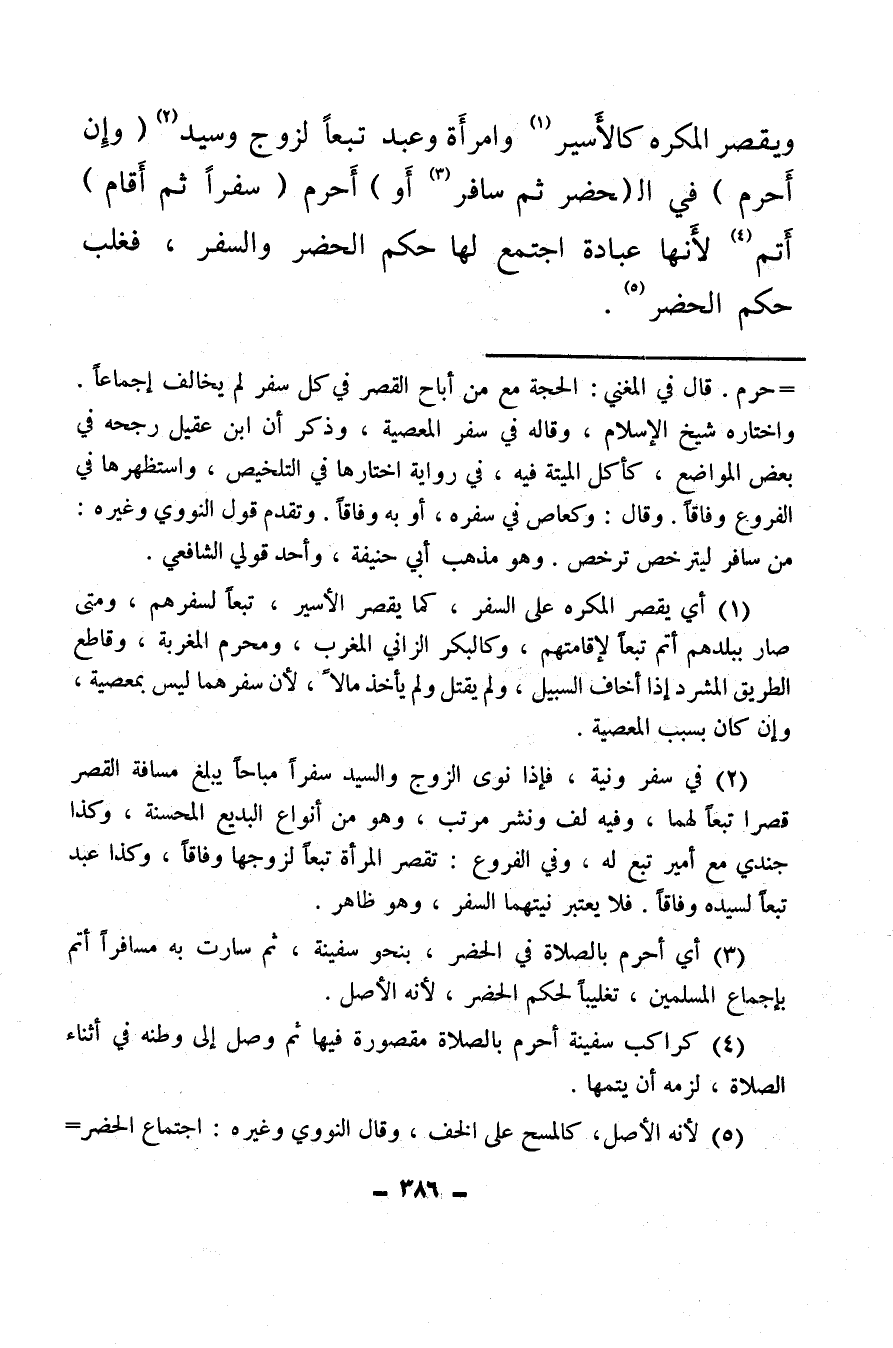 ويقصر المكره كالأَسير(١) وامرأَة وعبد تبعاً لزوج وسيد(٢) ( وإِن
أَحرم ) في الـ(ـحضر ثم سافر(٣) أَو ) أَحرم ( سفراً ثم أَقام )
أَتم(٤) لأَنها عبادة اجتمع لها حكم الحضر والسفر ، فغلب
حكم الحضر(٥) .
=حرم . قال في المغني : الحجة مع من أباح القصر في كل سفر لم يخالف إجماعاً .
واختاره شيخ الإسلام ، وقاله في سفر المعصية ، وذكر أن ابن عقيل رجحه في
بعض المواضع ، كأكل الميتة فيه ، في رواية اختارها في التلخيص ، واستظهرها في
الفروع وفاقاً . وقال : وكعاص في سفره ، أو به وفاقاً . وتقدم قول النووي وغيره :
من سافر ليترخص ترخص . وهو مذهب أبي حنيفة ، وأحد قولي الشافعي .
(١) أي يقصر المكره على السفر ، كما يقصر الأسير ، تبعاً لسفرهم ، ومتى
صار ببلدهم أتم تبعاً لإقامتهم ، وكالبكر الزاني المغرب ، ومحرم المغربة ، وقاطع
الطريق المشرد إذا أخاف السبيل ، ولم يقتل ولم يأخذ مالاً ، لأن سفرهما ليس بمعصية ،
وإن كان بسبب المعصية .
(٢) في سفر ونية ، فإذا نوى الزوج والسيد سفراً مباحاً يبلغ مسافة القصر
قصرا تبعاً لهما ، وفيه لف ونشر مرتب ، وهو من أنواع البديع المحسنة ، وكذا
جندي مع أمير تبع له ، وفي الفروع : تقصر المرأة تبعاً لزوجها وفاقاً ، وكذا عبد
تبعاً لسيده وفاقاً . فلا يعتبر نيتهما السفر ، وهو ظاهر .
(٣) أي أحرم بالصلاة في الحضر ، بنحو سفينة ، ثم سارت به مسافراً أتم
بإجماع المسلمين ، تغليباً لحكم الحضر ، لأنه الأصل .
(٤) كراكب سفينة أحرم بالصلاة مقصورة فيها ثم وصل إلى وطنه في أثناء
الصلاة ، لزمه أن يتمها .
(٥) لأنه الأصل، كالمسح على الخف ، وقال النووي وغيره : اجتماع الحضر=
– ٣٨٦ –